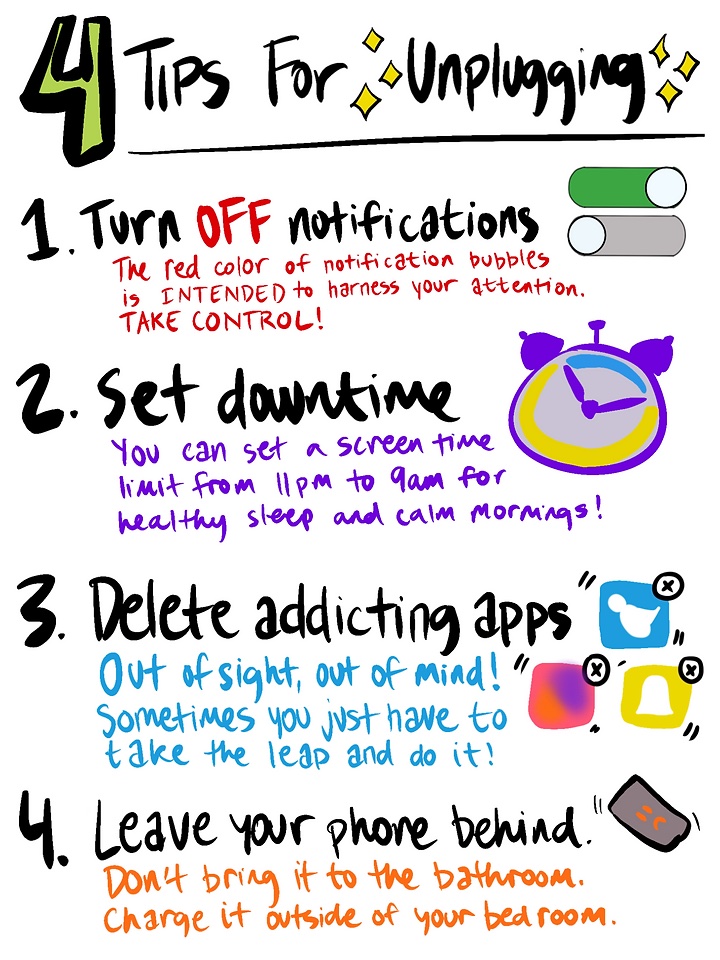 4 Tips For Unplugging
1. Turn OFF notifications
The red color of notification bubbles
is INTENDED to harness your attention.
TAKE CONTROL!
2. Set downtime
You can set a screen time
limit from 11pm to 9am for
healthy sleep and calm mornings!
3. Delete addicting apps
Out of sight, out of mind!
Sometimes you just have to
take the leap and do it!
4. Leave your phone behind.
Don't bring it to the bathroom.
Charge it outside of your bedroom.